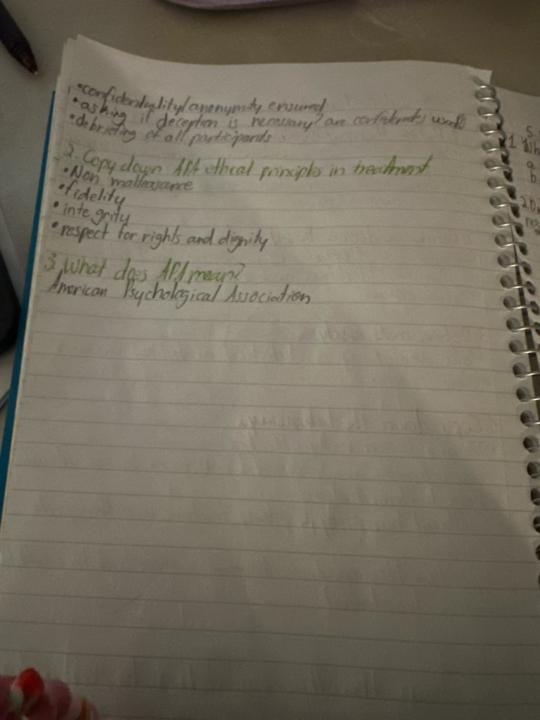 • confidentiality/anonymity ensured
• asking if deception is necessary? are confederates used?
• debriefing of all participants
2. Copy down APA ethical principles in treatment
• Non maleasance
• fidelity
• integrity
• respect for rights and dignity
3. What does APA mean?
American Psychological Association